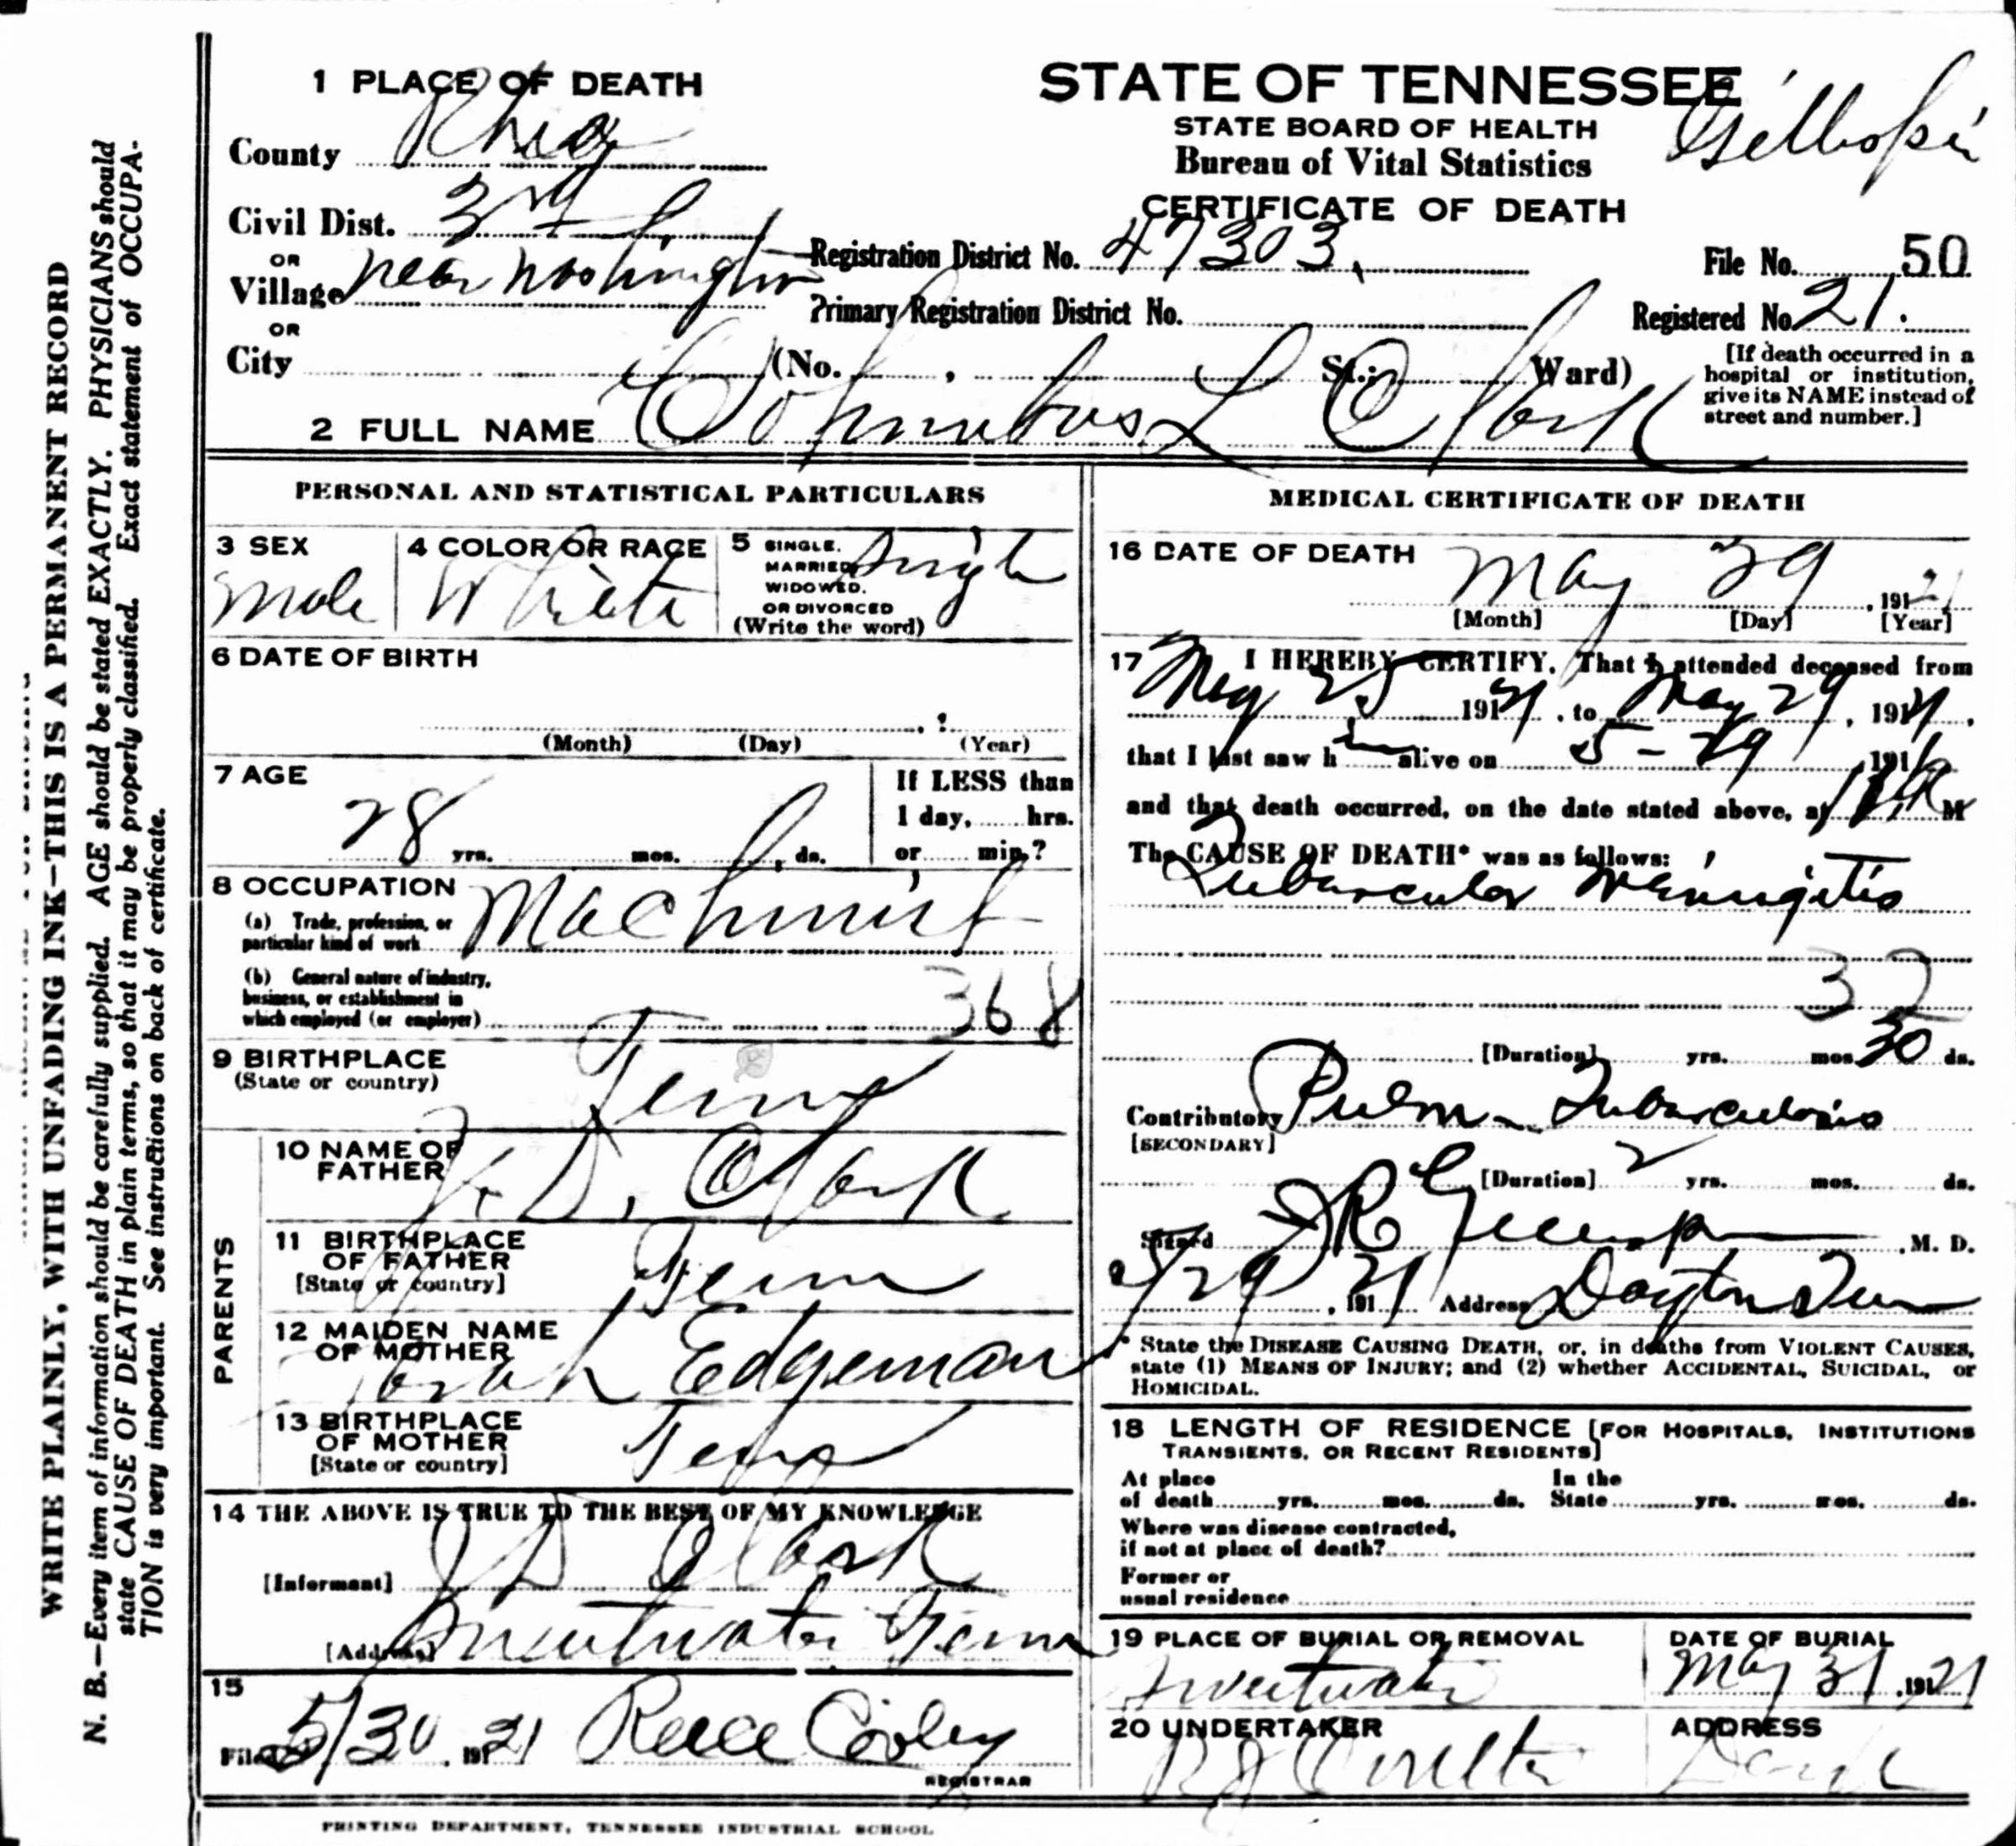 1 PLACE OF DEATH
County Rhea
Civil Dist. 3rd
OR
Village near Washington
OR
City (No. , St.; Ward)
STATE OF TENNESSEE
STATE BOARD OF HEALTH
Bureau of Vital Statistics
CERTIFICATE OF DEATH
Registration District No. 47303
Primary Registration District No.
File No. 50
Registered No. 21.
[If death occurred in a
hospital or institution,
give its NAME instead of
street and number.]
2 FULL NAME Columbus L Clark
PERSONAL AND STATISTICAL PARTICULARS
3 SEX Male
4 COLOR OR RACE White
5 SINGLE, MARRIED, WIDOWED, OR DIVORCED (Write the word) Single
6 DATE OF BIRTH
(Month) (Day) (Year)
7 AGE
28 yrs. mos. ds.
If LESS than
1 day, hrs.
or min.?
8 OCCUPATION
(a) Trade, profession, or
particular kind of work Machinist
(b) General nature of industry,
business, or establishment in
which employed (or employer) 368
9 BIRTHPLACE
(State or country) Tenn
PARENTS
10 NAME OF
FATHER J. D. Clark
11 BIRTHPLACE
OF FATHER
[State or country] Tenn
12 MAIDEN NAME
OF MOTHER Edgeman
13 BIRTHPLACE
OF MOTHER
[State or country] Tenn
14 THE ABOVE IS TRUE TO THE BEST OF MY KNOWLEDGE
[Informant] J D Clark
[Address] Sweetwater Tenn
15
Filed 5/30, 1921 Reece Cooley
REGISTRAR
MEDICAL CERTIFICATE OF DEATH
16 DATE OF DEATH
May 29, 1921
[Month] [Day] [Year]
17 I HEREBY CERTIFY, That I attended deceased from
May 25 1921, to May 29, 1921,
that I last saw him alive on 5-29, 191
and that death occurred, on the date stated above, at M
The CAUSE OF DEATH* was as follows:
Tubercular Meningitis
32
[Duration] yrs. mos. 30 ds.
Contributory Pulm- Tuberculosis
[SECONDARY]
[Duration] 2 yrs. mos. ds.
Signed J R Gillespie, M. D.
5/29, 1921 Address Dayton Tenn
* State the DISEASE CAUSING DEATH, or, in deaths from VIOLENT CAUSES,
state (1) MEANS OF INJURY; and (2) whether ACCIDENTAL, SUICIDAL, or
HOMICIDAL.
18 LENGTH OF RESIDENCE [FOR HOSPITALS, INSTITUTIONS
TRANSIENTS, OR RECENT RESIDENTS]
At place In the
of death yrs. mos. ds. State yrs. mos. ds.
Where was disease contracted,
if not at place of death?
Former or
usual residence
19 PLACE OF BURIAL OR REMOVAL
Sweetwater
DATE OF BURIAL
May 31, 1921
20 UNDERTAKER
Coulter
ADDRESS
PRINTING DEPARTMENT, TENNESSEE INDUSTRIAL SCHOOL
WRITE PLAINLY, WITH UNFADING INK—THIS IS A PERMANENT RECORD
N. B.—Every item of information should be carefully supplied. AGE should be stated EXACTLY. PHYSICIANS should
state CAUSE OF DEATH in plain terms, so that it may be properly classified. Exact statement of OCCUPA-
TION is very important. See instructions on back of certificate.